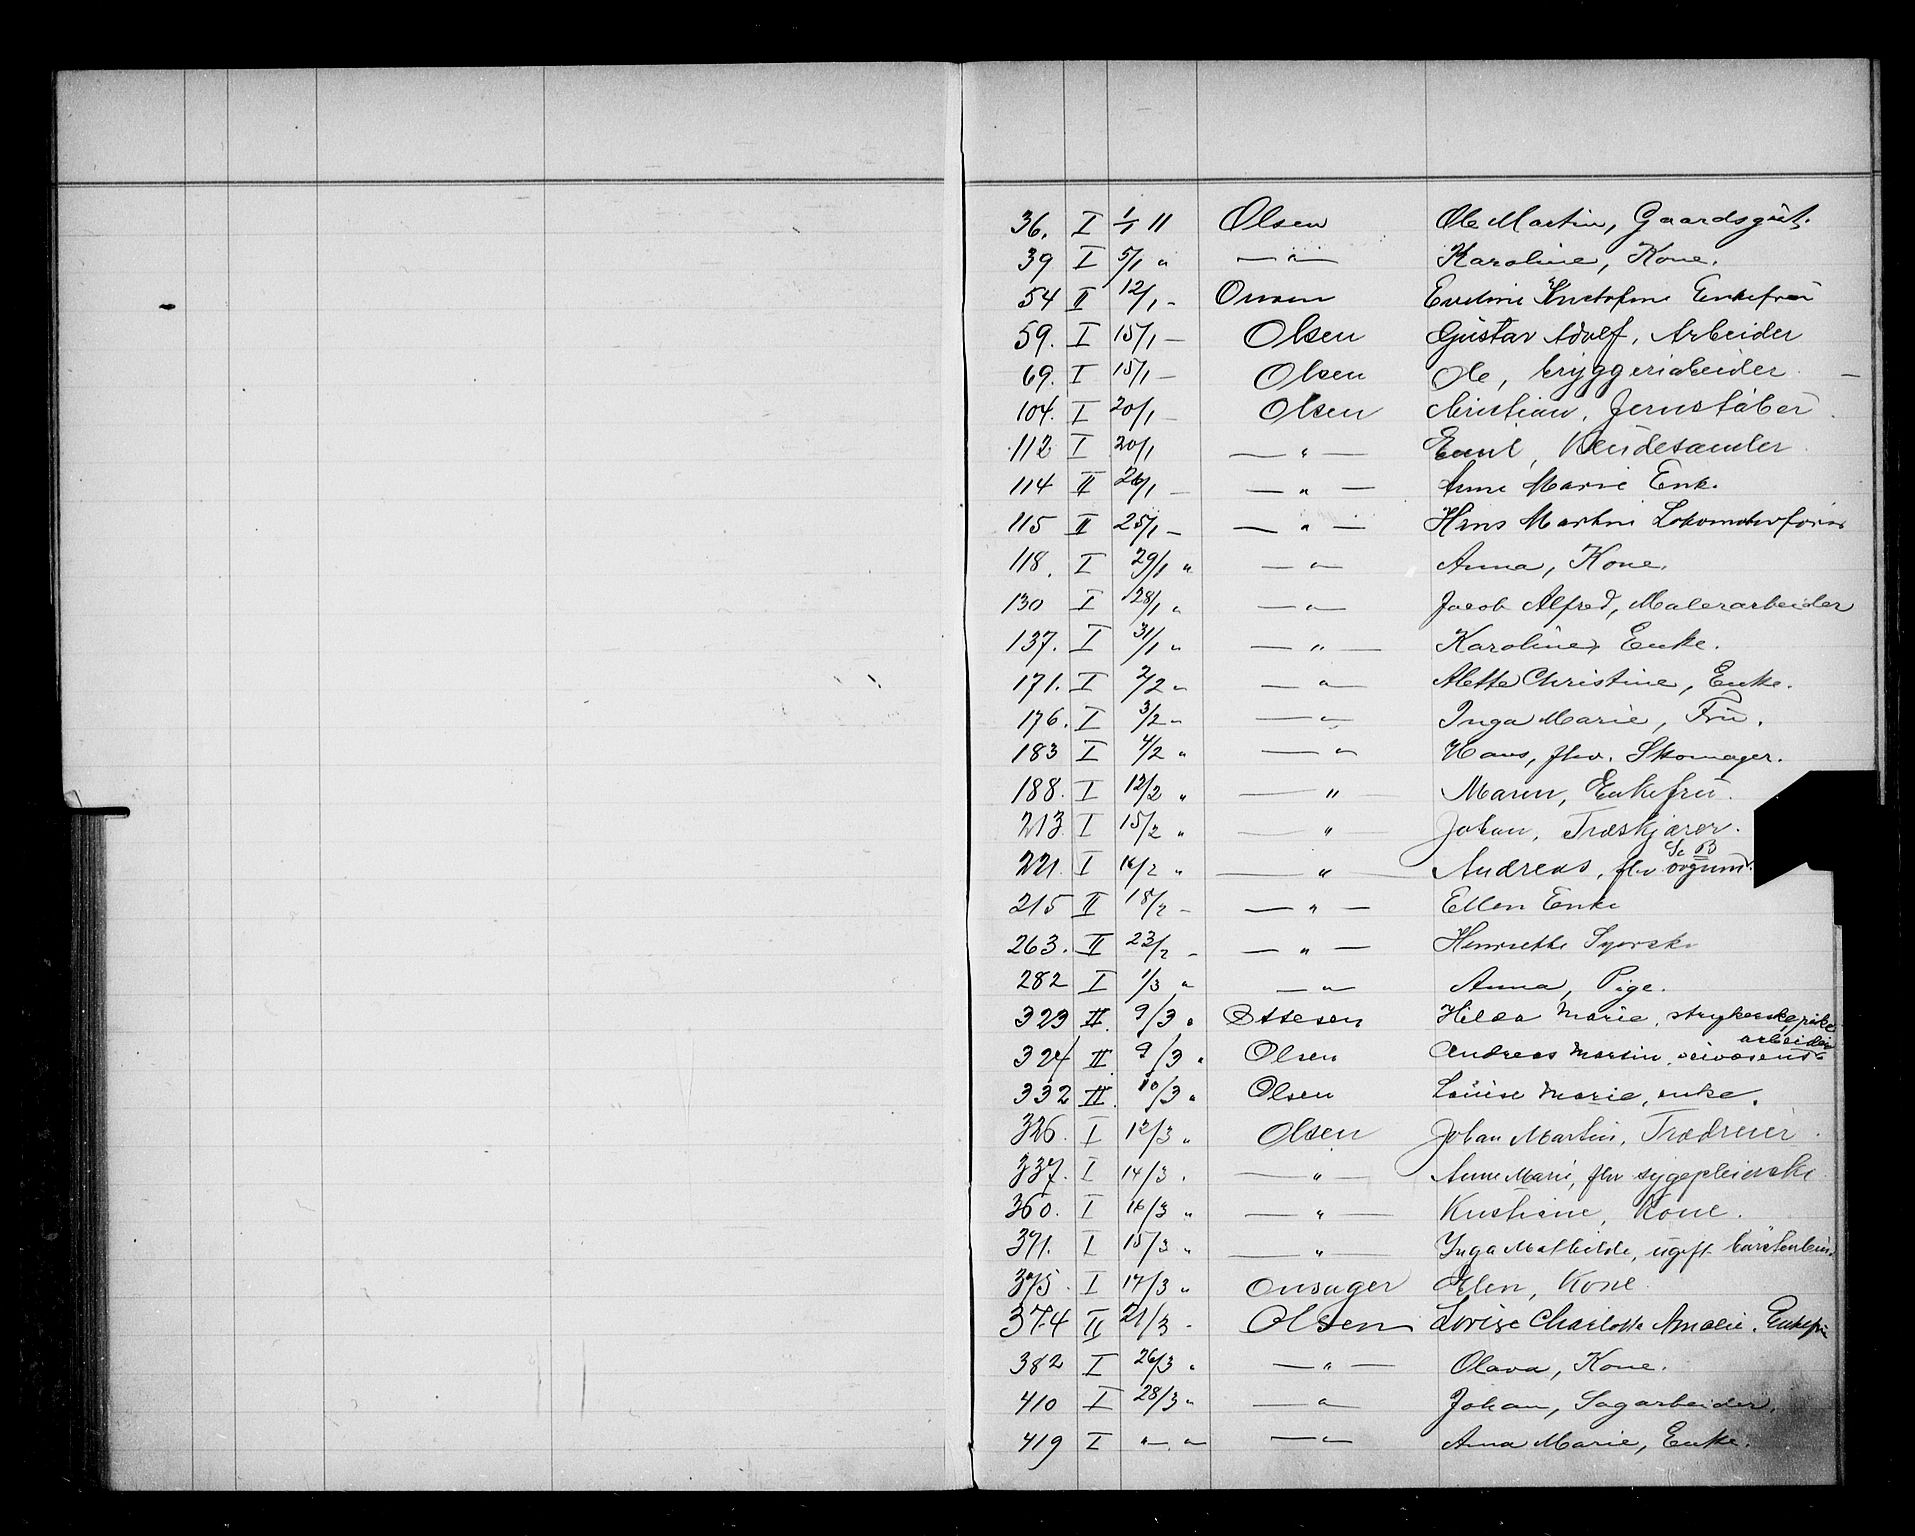 36. I 1/1 11 Olsen Ole Martin, Gaardsgut.
39 I 5/1 " — " — Karoline, Kone.
54 II 12/1 - Onsen Eveline Gustafine Enkefru
59. I 15/1 — Olsen Gustav Adolf, Arbeider
69. I 15/1 — Olsen Ole, bryggeriarbeider —
104. I 20/1 — Olsen Christian, Jernstøber
112 I 20/1 — " — Emil, Kludesamler
114 II 26/1 — — " — Anne Marie Enk.
115 II 25/1 — — " — Hans Martin Lokomotivfører
118. I 29/1 " — " — Anna, Kone.
130 I 28/1 " — " — Jacob Alfred, Malerarbeider
137. I 31/1 " — " — Karoline, Enke.
171. I 2/2 " — " — Alette Christine, Enke.
176. I 3/2 " — " — Inga Marie, Fru.
183 I 4/2 " — " Hans, fhv. Skomager.
188. I 12/2 " — " — Maren, Enkefru.
213 I 15/2 " — " — Johan, Træskjærer.
221. I 16/2 " — " — Andreas, fhv
215 II 18/2 - — " — Ellen Enke
263. II 23/2 - — " — Henriette Syerske
282 I 1/3 " — " — Anna, Pige.
323 II. 9/3 " Ottesen Hilda Marie, strykerske, pike
324 II 9/3 " Olsen Andreas Martin, arbeider
332 II. 10/3 " Olsen Louise Marie, enke.
326. I 12/3 " Olsen Johan Martin, Trædreier.
337. I 14/3 . — " — Anne Marie, fhv sygepleierske
360. I 16/3 " — " — Kristiane, Kone.
371. I 15/3 " — " Inga Mathilde, ugift
375. I 17/3 " Onsager Elen, Kone
374 II 21/3 - Olsen Lovise Charlotte Amalie. Enkefru
382 I 26/3 " — " — Olava, Kone.
410 I 28/3 " — " — Johan, Sagarbeider.
419 I " — " — " — Anna Marie, Enke.